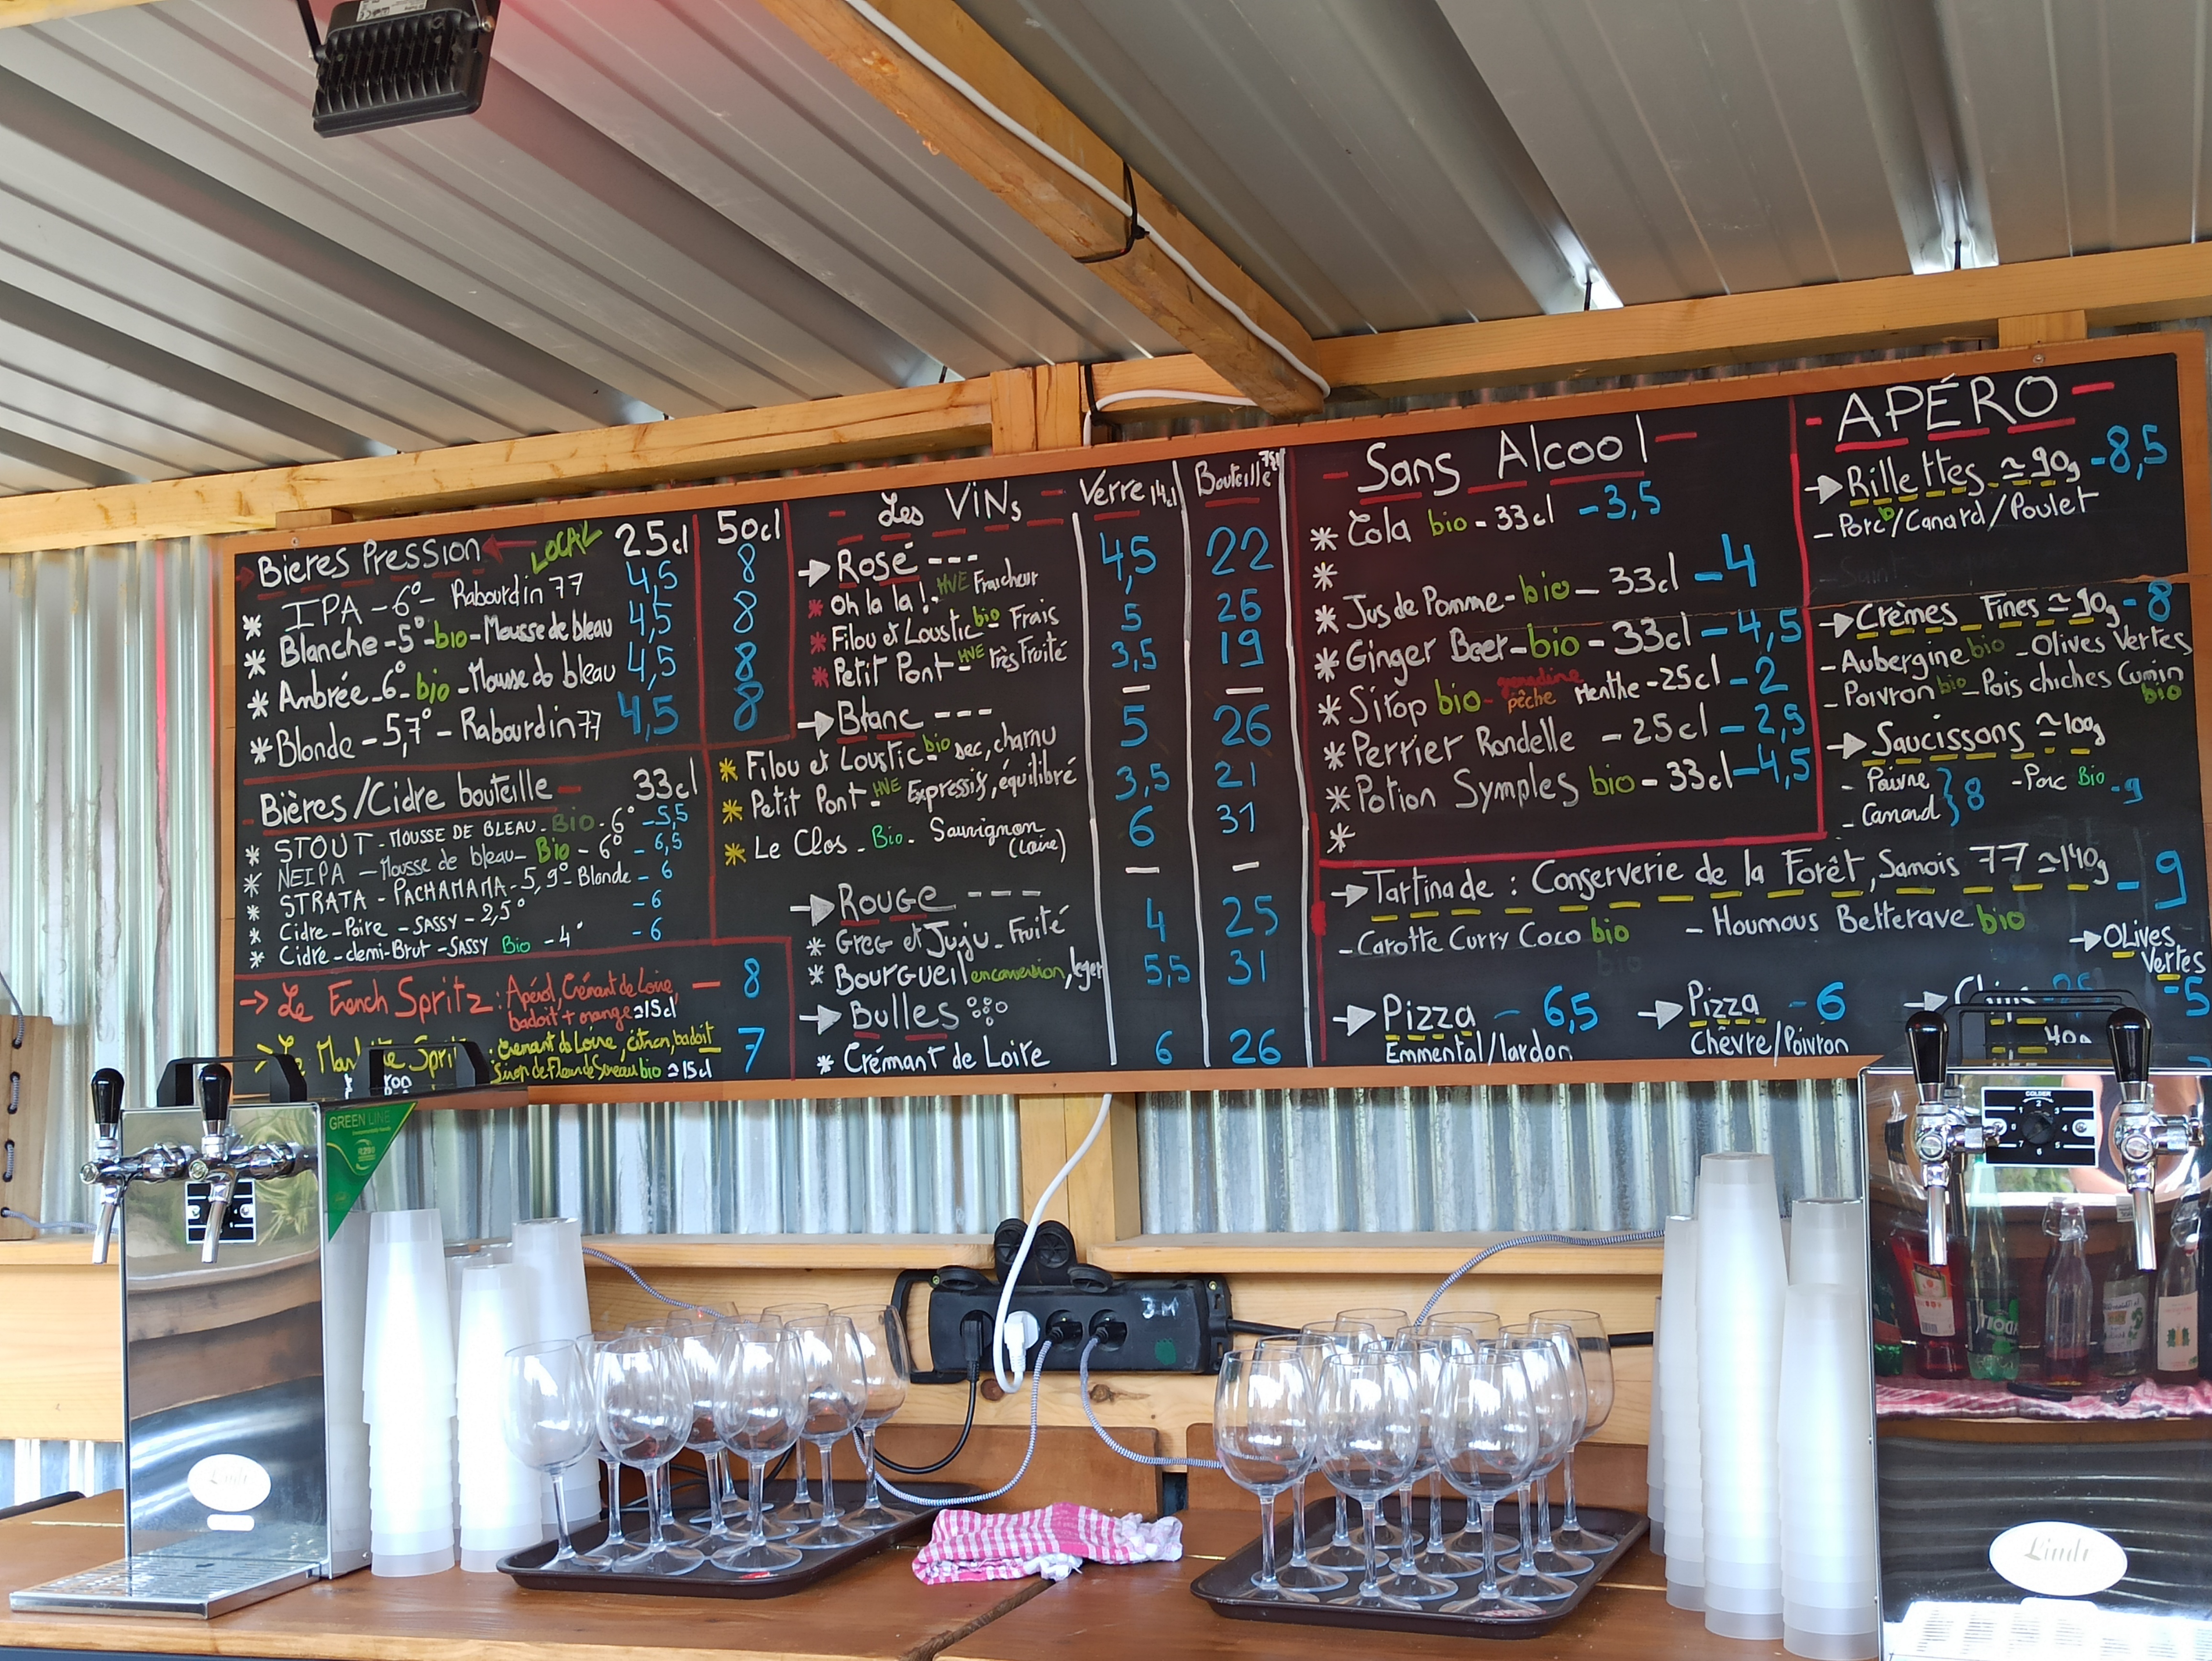 Bieres Pression LOCAL 25cl 50cl
* IPA - 6° - Rabourdin 77 4,5 8
* Blanche - 5° - bio - Mousse de bleau 4,5 8
* Ambrée - 6° - bio - Mousse de bleau 4,5 8
* Blonde - 5,7° - Rabourdin 77 4,5 8
- Bières/Cidre bouteille - 33cl
* STOUT - MOUSSE DE BLEAU - Bio - 6° - 5,5
* NEIPA - Mousse de bleau - Bio - 6° - 6,5
* STRATA - PACHAMAMA - 5,9° - Blonde - 6
* Cidre - Poire - SASSY - 2,5° - 6
* Cidre - demi-Brut - SASSY Bio - 4° - 6
-> Le French Spritz : Apérol, Crémant de Loire, - 8
badoit + orange ≃15cl
: Crémant de Loire, citron, badoit 7
Sirop de Fleur de Sureau bio ≃15cl
- Les ViNs - Verre 14cl Bouteille 75cl
→ Rosé --- 4,5 22
* Oh la la ! - HVE Fraicheur 5 26
* Filou et Loustic bio - Frais 3,5 19
* Petit Pont - HVE Très Fruité
→ Blanc ---
* Filou et Loustic - bio sec, charnu 5 26
* Petit Pont - HVE Expressif, équilibré 3,5 21
* Le Clos - Bio - Sauvignon 6 31
(Loire)
→ Rouge ---
* Greg et Juju - Fruité 4 25
* Bourgueil en conversion, leger 5,5 31
→ Bulles
* Crémant de Loire 6 26
- Sans Alcool -
* Cola bio - 33cl - 3,5
*
* Jus de Pomme - bio - 33cl - 4
* Ginger Beer - bio - 33cl - 4,5
* Sirop bio - grenadine pêche Menthe - 25cl - 2
* Perrier Rondelle - 25cl - 2,5
* Potion Symples bio - 33cl - 4,5
*
- APÉRO -
→ Rillettes ≃ 90g - 8,5
- Porc b/Canard/Poulet
→ Crèmes Fines ≃ 90g - 8
- Aubergine bio - Olives Vertes
- Poivron bio - Pois chiches Cumin
bio
→ Saucissons ≃ 100g
- Poivre } 8 - Porc Bio - 9
- Canard
→ Tartinade : Conserverie de la Forêt, Samois 77 ≃140g - 9
- Carotte Curry Coco bio - Houmous Betterave bio
→ OLives
Vertes
- 5
→ Pizza - 6,5 → Pizza - 6 → Chips
Emmental/lardon Chèvre/Poivron 40g
GREEN LINE
3M
GOLDER
Lindr
Lindr